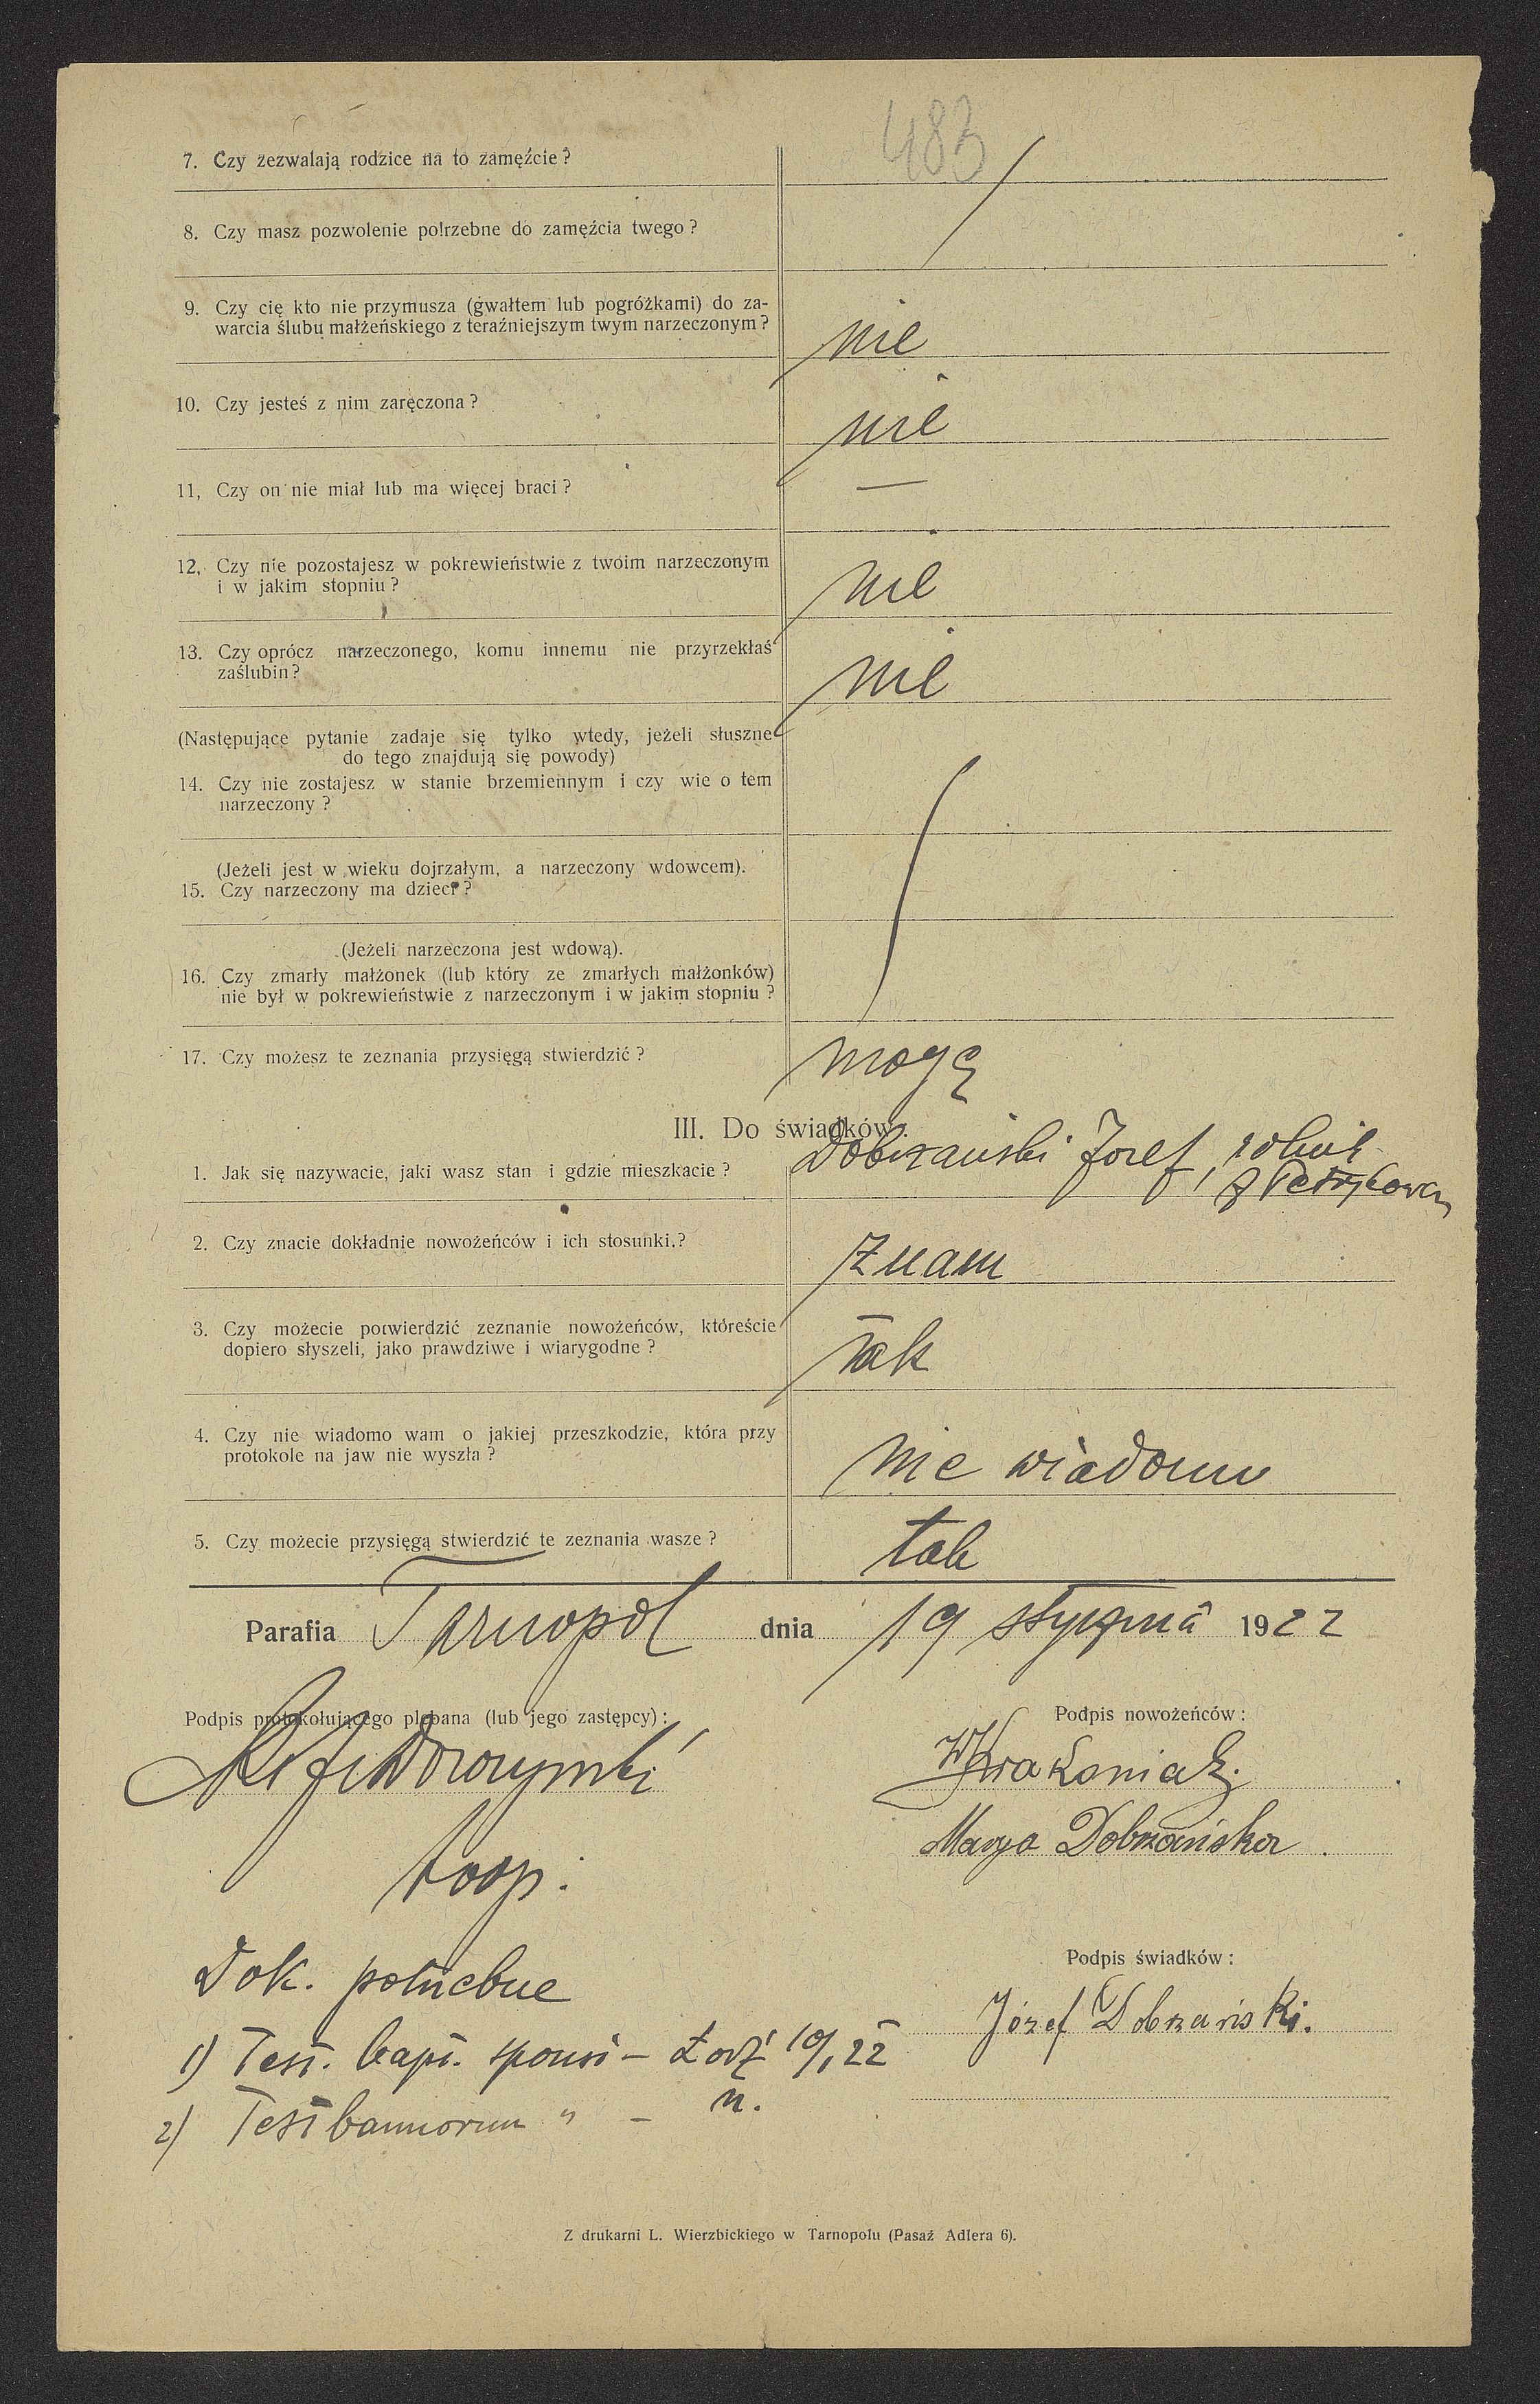 483
7. Czy zezwalają rodzice na to zamęźcie?
8. Czy masz pozwolenie potrzebne do zamęźcia twego?
9. Czy cię kto nie przymusza (gwałtem lub pogróżkami) do za-
warcia ślubu małżeńskiego z teraźniejszym twym narzeczonym?
nie
10. Czy jesteś z nim zaręczona?
nie
11, Czy on nie miał lub ma więcej braci?
—
12, Czy nie pozostajesz w pokrewieństwie z twoim narzeczonym
i w jakim stopniu?
nie
13. Czy oprócz narzeczonego, komu innemu nie przyrzekłaś
zaślubin?
nie
(Następujące pytanie zadaje się tylko wtedy, jeżeli słuszne
do tego znajdują się powody)
14. Czy nie zostajesz w stanie brzemiennym i czy wie o tem
narzeczony?
(Jeżeli jest w wieku dojrzałym, a narzeczony wdowcem).
15. Czy narzeczony ma dzieci?
(Jeżeli narzeczona jest wdową).
16. Czy zmarły małżonek (lub który ze zmarłych małżonków)
nie był w pokrewieństwie z narzeczonym i w jakim stopniu?
17. Czy możesz te zeznania przysięgą stwierdzić?
mogę
III. Do świadków:
1. Jak się nazywacie, jaki wasz stan i gdzie mieszkacie?
Dobrzański Józef, rolnik
z Petrykowa
2. Czy znacie dokładnie nowożeńców i ich stosunki.?
znam
3. Czy możecie potwierdzić zeznanie nowożeńców, któreście
dopiero słyszeli, jako prawdziwe i wiarygodne?
tak
4. Czy nie wiadomo wam o jakiej przeszkodzie, która przy
protokole na jaw nie wyszła?
nie wiadomo
5. Czy możecie przysięgą stwierdzić te zeznania wasze?
tak
Parafia Tarnopol dnia 19 stycznia 1922
Podpis protokołującego plebana (lub jego zastępcy):
Podpis nowożeńców:
Marya Dobrzańska
koop.
Dok. potrzebne
Podpis świadków:
Józef Dobrzański.
1) Test. bapt. sponsi – Łódź 10/1 22
2) Test bannorum " – n.
Z drukarni L. Wierzbickiego w Tarnopolu (Pasaż Adlera 6).